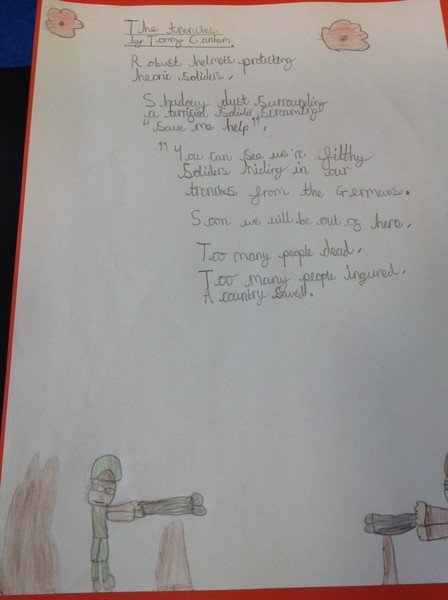 The trenches
by Tommy
Robust helmets protecting
heoric soliders.
Shadowy dust surrounding
a terrified solider screaming
"save me help".
"You can see we're filthy
Soliders hiding in our
trenches from the Germans.
Soon we will be out of here.
Too many people dead.
Too many people ingured.
A country saved.